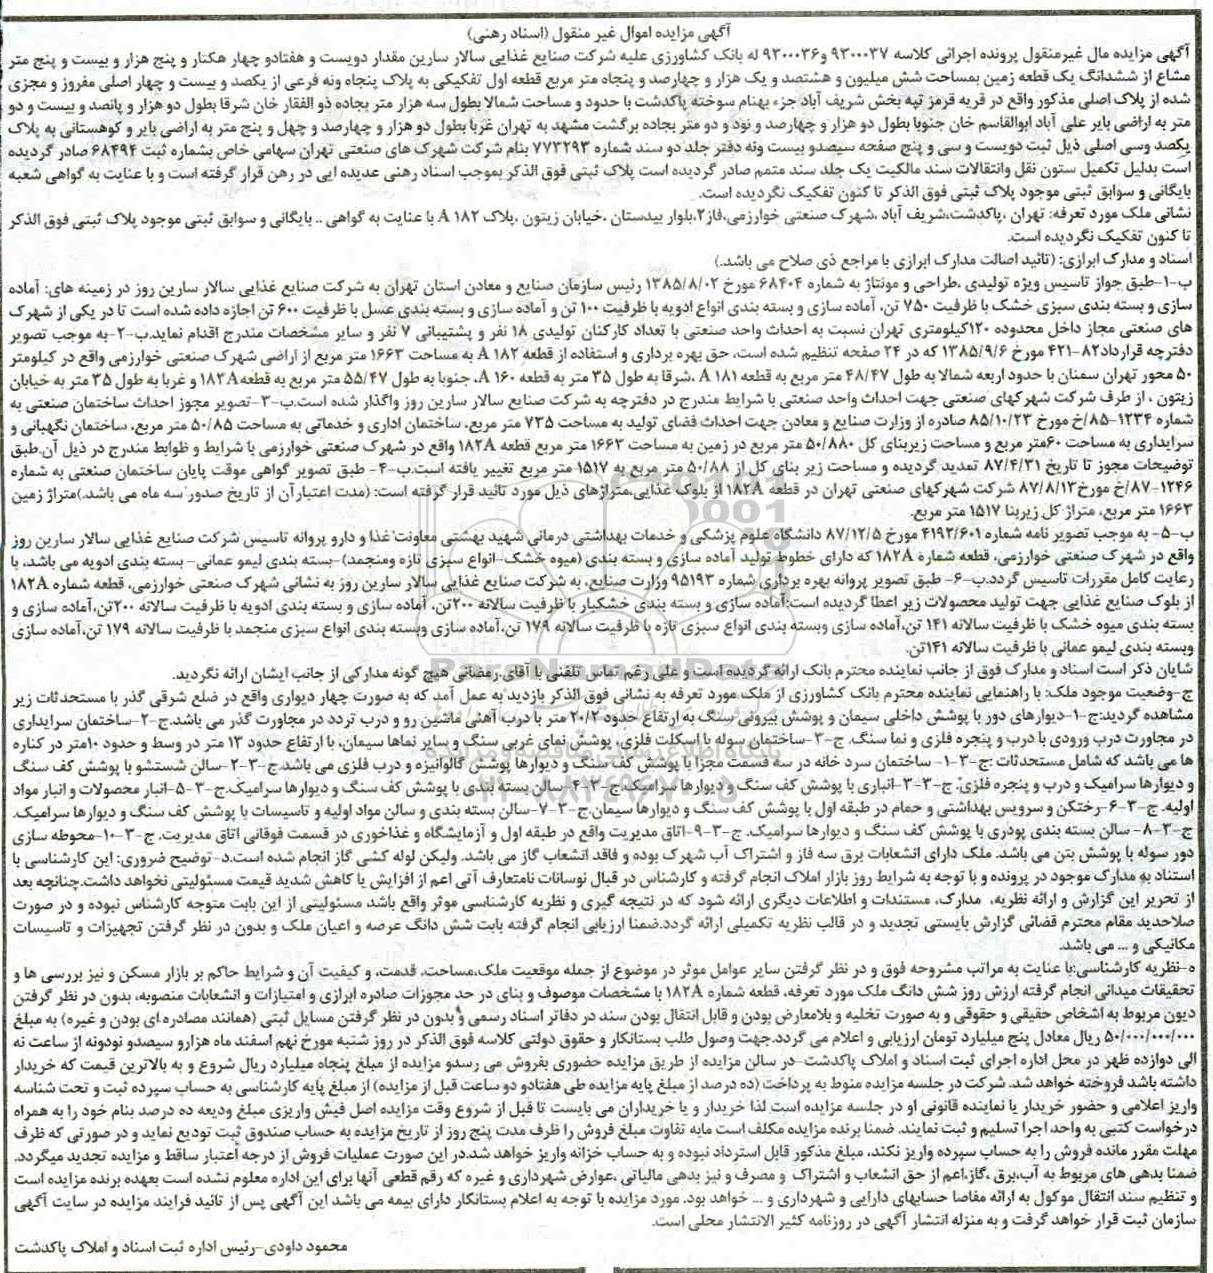 آگهی مزایده اموال غیر منقول (اسناد رهنی)
آگهی مزایده مال غیرمنقول پرونده اجرائی کلاسه ۹۳۰۰۰۳۷ و۹۳۰۰۰۳۶ له بانک کشاورزی علیه شرکت صنایع غذایی سالار سارین مقدار دویست و هفتادو چهار هکتار و پنج هزار و بیست و پنج متر
مشاع از ششدانگ یک قطعه زمین بمساحت شش میلیون و هشتصد و یک هزار و چهارصد و پنجاه متر مربع قطعه اول تفکیکی به پلاک پنجاه ونه فرعی از یکصد و بیست و چهار اصلی مفروز و مجزی
شده از پلاک اصلی مذکور واقع در قریه قرمز تپه بخش شریف آباد جزء بهنام سوخته پاکدشت با حدود و مساحت شمالا بطول سه هزار متر بجاده ذو الفقار خان شرقا بطول دو هزار و پانصد و بیست و دو
متر به اراضی بایر علی آباد ابوالقاسم خان جنوبا بطول دو هزار و چهارصد و نود و دو متر بجاده برگشت مشهد به تهران غربا بطول دو هزار و چهارصد و چهل و پنج متر به اراضی بایر و کوهستانی به پلاک
یکصد وسی اصلی ذیل ثبت دویست و سی و پنج صفحه سیصدو بیست ونه دفتر جلد دو سند شماره ۷۷۳۲۹۳ بنام شرکت شهرک های صنعتی تهران سهامی خاص بشماره ثبت ۶۸۴۹۴ صادر گردیده
است بدلیل تکمیل ستون نقل وانتقالات سند مالکیت یک جلد سند متمم صادر گردیده است پلاک ثبتی فوق الذکر بموجب اسناد رهنی عدیده ایی در رهن قرار گرفته است و با عنایت به گواهی شعبه
بایگانی و سوابق ثبتی موجود پلاک ثبتی فوق الذکر تا کنون تفکیک نگردیده است.
نشانی ملک مورد تعرفه: تهران ،پاکدشت،شریف آباد ،شهرک صنعتی خوارزمی،فاز۲،بلوار بیدستان ،خیابان زیتون ،پلاک A ۱۸۲ با عنایت به گواهی .. بایگانی و سوابق ثبتی موجود پلاک ثبتی فوق الذکر
تا کنون تفکیک نگردیده است.
اسناد و مدارک ابرازی: (تائید اصالت مدارک ابرازی با مراجع ذی صلاح می باشد.)
ب-۱-طبق جواز تاسیس ویژه تولیدی ،طراحی و مونتاژ به شماره ۶۸۴۰۴ مورخ ۱۳۸۵/۸/۰۲ رئیس سازمان صنایع و معادن استان تهران به شرکت صنایع غذایی سالار سارین روز در زمینه های: آماده
سازی و بسته بندی سبزی خشک با ظرفیت ۷۵۰ تن، آماده سازی و بسته بندی انواع ادویه با ظرفیت ۱۰۰ تن و آماده سازی و بسته بندی عسل با ظرفیت ۶۰۰ تن اجازه داده شده است تا در یکی از شهرک
های صنعتی مجاز داخل محدوده ۱۲۰کیلومتری تهران نسبت به احداث واحد صنعتی با تعداد کارکنان تولیدی ۱۸ نفر و پشتیبانی ۷ نفر و سایر مشخصات مندرج اقدام نماید.ب-۲-به موجب تصویر
دفترچه قرارداد۸۲-۴۲۱ مورخ ۱۳۸۵/۹/۶ که در ۲۴ صفحه تنظیم شده است، حق بهره برداری و استفاده از قطعه A ۱۸۲ به مساحت ۱۶۶۳ متر مربع از اراضی شهرک صنعتی خوارزمی واقع در کیلومتر
۵۰ محور تهران سمنان با حدود اربعه شمالا به طول ۴۸/۴۷ متر مربع به قطعه A ۱۸۱ ،شرقا به طول ۳۵ متر به قطعه A ۱۶۰، جنوبا به طول ۵۵/۴۷ متر مربع به قطعه۱۸۳A و غربا به طول ۳۵ متر به خیابان
زیتون ، از طرف شرکت شهرکهای صنعتی جهت احداث واحد صنعتی با شرایط مندرج در دفترچه به شرکت صنایع سالار سارین روز واگذار شده است.ب-۳-تصویر مجوز احداث ساختمان صنعتی به
شماره ۱۲۳۴-۸۵/خ مورخ ۸۵/۱۰/۲۳ صادره از وزارت صنایع و معادن جهت احداث فضای تولید به مساحت ۷۳۵ متر مربع، ساختمان اداری و خدماتی به مساحت ۵۰/۸۵ متر مربع، ساختمان نگهبانی و
سرایداری به مساحت ۶۰متر مربع و مساحت زیربنای کل ۵۰/۸۸۰ متر مربع در زمین به مساحت ۱۶۶۳ متر مربع قطعه ۱۸۲A واقع در شهرک صنعتی خوارزمی با شرایط و ظوابط مندرج در ذیل آن.طبق
توضیحات مجوز تا تاریخ ۸۷/۴/۳۱ تمدید گردیده و مساحت زیر بنای کل از ۵۰/۸۸ متر مربع به ۱۵۱۷ متر مربع تغییر یافته است.ب-۴- طبق تصویر گواهی موقت پایان ساختمان صنعتی به شماره
۱۲۴۶-۸۷/خ مورخ۸۷/۸/۱۳ شرکت شهرکهای صنعتی تهران در قطعه ۱۸۲A از بلوک غذایی،متراژهای ذیل مورد تائید قرار گرفته است: (مدت اعتبارآن از تاریخ صدور سه ماه می باشد.)متراژ زمین
۱۶۶۳ متر مربع، متراژ کل زیربنا ۱۵۱۷ متر مربع.
ب-۵- به موجب تصویر نامه شماره ۴۱۹۲/۶۰۱ مورخ ۸۷/۱۲/۵ دانشگاه علوم پزشکی و خدمات بهداشتی درمانی شهید بهشتی معاونت غذا و دارو پروانه تاسیس شرکت صنایع غذایی سالار سارین روز
واقع در شهرک صنعتی خوارزمی، قطعه شماره ۱۸۲A که دارای خطوط تولید آماده سازی و بسته بندی (میوه خشک-انواع سبزی تازه ومنجمد)-بسته بندی لیمو عمانی- بسته بندی ادویه می باشد، با
رعایت کامل مقررات تاسیس گردد.ب-۶- طبق تصویر پروانه بهره برداری شماره ۹۵۱۹۳ وزارت صنایع، به شرکت صنایع غذایی سالار سارین روز به نشانی شهرک صنعتی خوارزمی، قطعه شماره ۱۸۲A
از بلوک صنایع غذایی جهت تولید محصولات زیر اعطا گردیده است:آماده سازی و بسته بندی خشکبار با ظرفیت سالانه ۲۰۰تن، آماده سازی و بسته بندی ادویه با ظرفیت سالانه ۲۰۰تن،آماده سازی و
بسته بندی میوه خشک با ظرفیت سالانه ۱۴۱ تن،آماده سازی وبسته بندی انواع سبزی تازه با ظرفیت سالانه ۱۷۹ تن،آماده سازی وبسته بندی انواع سبزی منجمد با ظرفیت سالانه ۱۷۹ تن،آماده سازی
وبسته بندی لیمو عمانی با ظرفیت سالانه ۱۴۱تن.
شایان ذکر است اسناد و مدارک فوق از جانب نماینده محترم بانک ارائه گردیده است و علی رغم تماس تلفنی با آقای.رمضانی هیچ گونه مدارکی از جانب ایشان ارائه نگردید.
ج-وضعیت موجود ملک: با راهنمایی نماینده محترم بانک کشاورزی از ملک مورد تعرفه به نشانی فوق الذکر بازدید به عمل آمد که به صورت چهار دیواری واقع در ضلع شرقی گذر با مستحدثات زیر
مشاهده گردید:ج-۱-دیوارهای دور با پوشش داخلی سیمان و پوشش بیرونی سنگ به ارتفاع حدود ۲۰/۲ متر با درب آهنی ماشین رو و درب تردد در مجاورت گذر می باشد.ج-۲-ساختمان سرایداری
در مجاورت درب ورودی با درب و پنجره فلزی و نما سنگ. ج-۳-ساختمان سوله با اسکلت فلزی، پوشش نمای غربی سنگ و سایر نماها سیمان، با ارتفاع حدود ۱۳ متر در وسط و حدود ۱۰متر در کناره
ها می باشد که شامل مستحدثات :ج-۳-۱- ساختمان سرد خانه در سه قسمت مجزا با پوشش کف سنگ و دیوارها پوشش گالوانیزه و درب فلزی می باشد.ج-۳-۲-سالن شستشو با پوشش کف سنگ
و دیوارها سرامیک و درب و پنجره فلزی. ج-۳-۳-انباری با پوشش کف سنگ و دیوارها سرامیک.ج-۳-۴- سالن بسته بندی با پوشش کف سنگ و دیوارها سرامیک.ج-۳-۵-انبار محصولات و انبار مواد
اولیه. ج-۳-۶-رختکن و سرویس بهداشتی و حمام در طبقه اول با پوشش کف سنگ و دیوارها سیمان.ج-۳-۷-سالن بسته بندی و سالن مواد اولیه و تاسیسات با پوشش کف سنگ و دیوارها سرامیک.
ج-۳-۸- سالن بسته بندی پودری با پوشش کف سنگ و دیوارها سرامیک. ج-۳-۹-اتاق مدیریت واقع در طبقه اول و آزمایشگاه و غذاخوری در قسمت فوقانی اتاق مدیریت. ج-۳-۱۰-محوطه سازی
دور سوله با پوشش بتن می باشد. ملک دارای انشعابات برق سه فاز و اشتراک آب شهرک بوده و فاقد انشعاب گاز می باشد. ولیکن لوله کشی گاز انجام شده است.د-توضیح ضروری: این کارشناسی با
استناد به مدارک موجود در پرونده و با توجه به شرایط روز بازار املاک انجام گرفته و کارشناس در قبال نوسانات نامتعارف آتی اعم از افزایش یا کاهش شدید قیمت مسئولیتی نخواهد داشت.چنانچه بعد
از تحریر این گزارش و ارائه نظریه، مدارک، مستندات و اطلاعات دیگری ارائه شود که در نتیجه گیری و نظریه کارشناسی موثر واقع باشد مسئولیتی از این بابت متوجه کارشناس نبوده و در صورت
صلاحدید مقام محترم قضائی گزارش بایستی تجدید و در قالب نظریه تکمیلی ارائه گردد.ضمنا ارزیابی انجام گرفته بابت شش دانگ عرصه و اعیان ملک و بدون در نظر گرفتن تجهیزات و تاسیسات
مکانیکی و ... می باشد.
ه-نظریه کارشناسی:با عنایت به مراتب مشروحه فوق و در نظر گرفتن سایر عوامل موثر در موضوع از جمله موقعیت ملک،مساحت، قدمت، و کیفیت آن و شرایط حاکم بر بازار مسکن و نیز بررسی ها و
تحقیقات میدانی انجام گرفته ارزش روز شش دانگ ملک مورد تعرفه، قطعه شماره ۱۸۲A با مشخصات موصوف و بنای در حد مجوزات صادره ابرازی و امتیازات و انشعابات منصوبه، بدون در نظر گرفتن
دیون مربوط به اشخاص حقیقی و حقوقی و به صورت تخلیه و بلامعارض بودن و قابل انتقال بودن سند در دفاتر اسناد رسمی و بدون در نظر گرفتن مسایل ثبتی (همانند مصادره ای بودن و غیره) به مبلغ
۵۰/۰۰۰/۰۰۰/۰۰۰ ریال معادل پنج میلیارد تومان ارزیابی و اعلام می گردد.جهت وصول طلب بستانکار و حقوق دولتی کلاسه فوق الذکر در روز شنبه مورخ نهم اسفند ماه هزارو سیصدو نودونه از ساعت نه
الی دوازده ظهر در محل اداره اجرای ثبت اسناد و املاک پاکدشت-در سالن مزایده از طریق مزایده حضوری بفروش می رسدو مزایده از مبلغ پنجاه میلیارد ریال شروع و به بالاترین قیمت که خریدار
داشته باشد فروخته خواهد شد. شرکت در جلسه مزایده منوط به پرداخت (ده درصد از مبلغ پایه مزایده طی هفتادو دو ساعت قبل از مزایده) از مبلغ پایه کارشناسی به حساب سپرده ثبت و تحت شناسه
واریز اعلامی و حضور خریدار یا نماینده قانونی او در جلسه مزایده است لذا خریدار و یا خریداران می بایست تا قبل از شروع وقت مزایده اصل فیش واریزی مبلغ ودیعه ده درصد بنام خود را به همراه
درخواست کتبی به واحد اجرا تسلیم و ثبت نمایند. ضمنا برنده مزایده مکلف است مابه تفاوت مبلغ فروش را ظرف مدت پنج روز از تاریخ مزایده به حساب صندوق ثبت تودیع نماید و در صورتی که ظرف
مهلت مقرر مانده فروش را به حساب سپرده واریز نکند، مبلغ مذکور قابل استرداد نبوده و به حساب خزانه واریز خواهد شد.در این صورت عملیات فروش از درجه اعتبار ساقط و مزایده تجدید میگردد.
ضمنا بدهی های مربوط به آب،برق ،گاز،اعم از حق انشعاب و اشتراک و مصرف و نیز بدهی مالیاتی ،عوارض شهرداری و غیره که رقم قطعی آنها برای این اداره معلوم نشده است بعهده برنده مزایده است
و تنظیم سند انتقال موکول به ارائه مفاصا حسابهای دارایی و شهرداری و ... خواهد بود. مورد مزایده با توجه به اعلام بستانکار دارای بیمه می باشد این آگهی پس از تائید فرایند مزایده در سایت آگهی
سازمان ثبت قرار خواهد گرفت و به منزله انتشار آگهی در روزنامه کثیر الانتشار محلی است.
محمود داودی-رئیس اداره ثبت اسناد و املاک پاکدشت
ParsNamadData